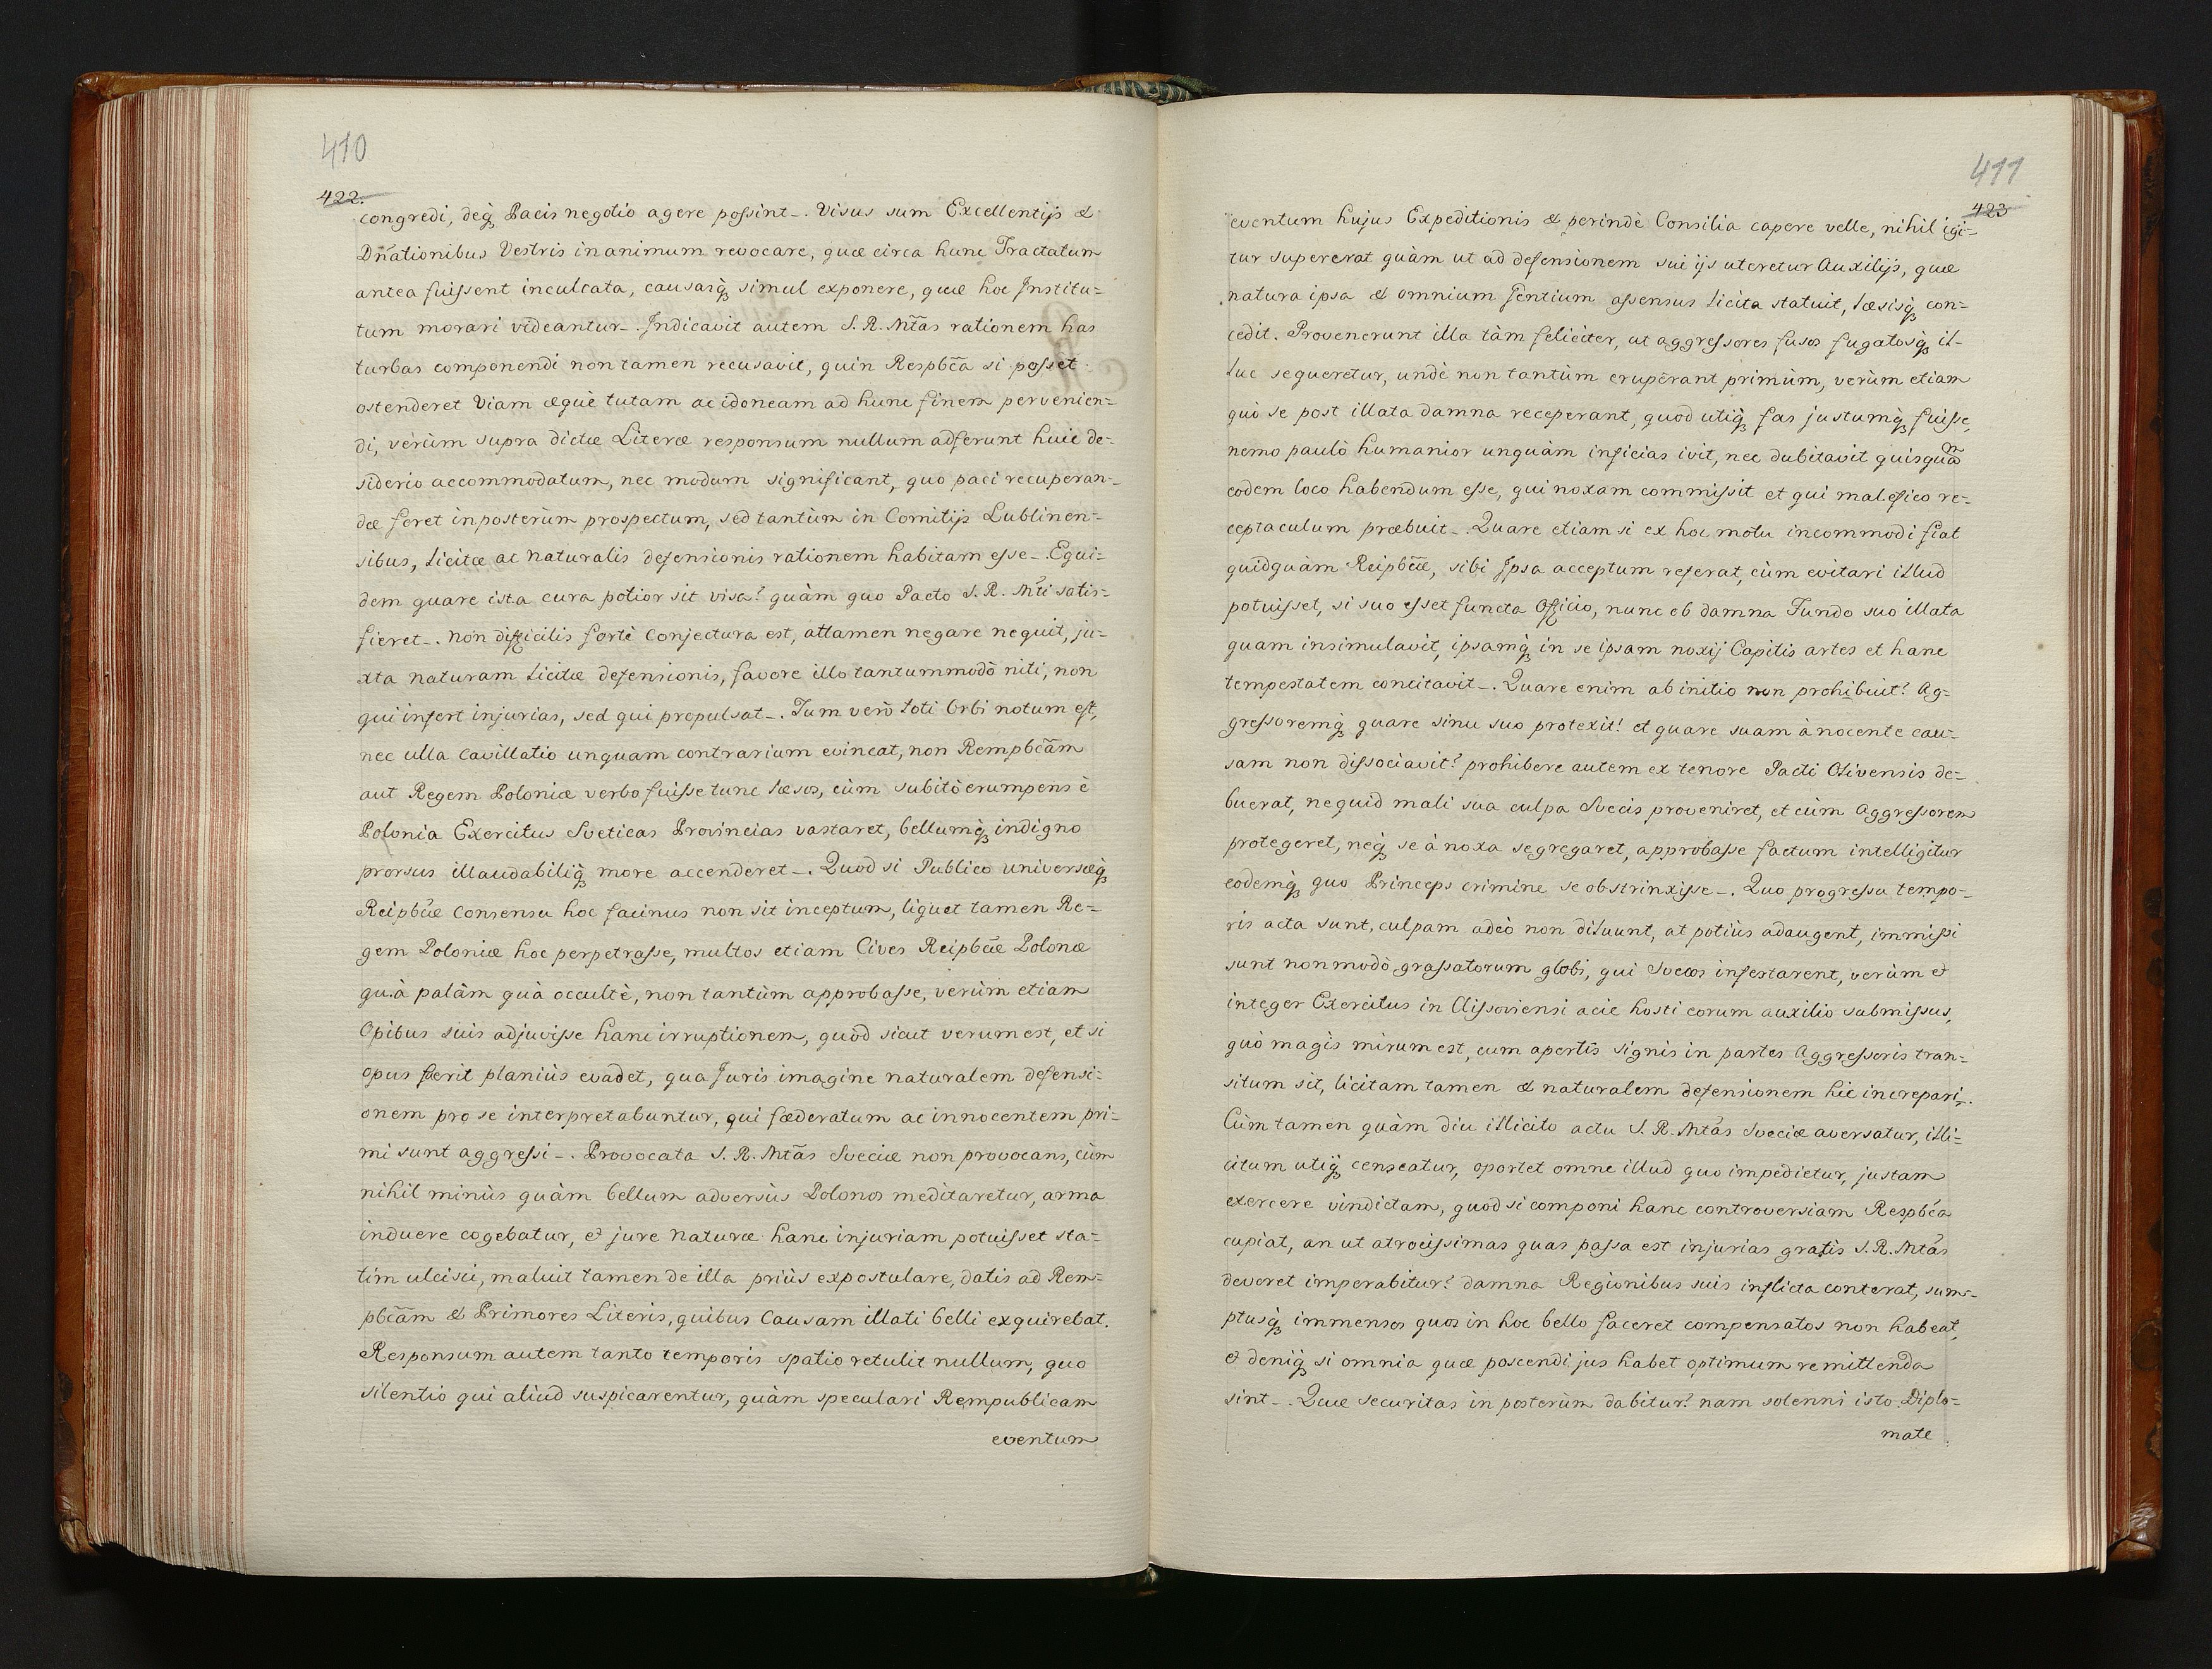 410
422.
congredi, deq̃ Pacis negotio agere poſsint_. Visus sum Excellentijs &
Dñationibus Vestris in animum revocare, quæ circa hunc Tractatum
antea fuiſsent inculcata, causasq̃ simul exponere, quæ hoc Institu=
tum morari videantur_. Indicavit autem S. R. Mãtas rationem has
turbas componendi non tamen recusavit, quin Respb̃ca si poſset
ostenderet Viam æquè tutam ac idoneam ad hunc finem pervenien=
di, verùm supra dictæ Literæ responsum nullum adferunt huic de=
siderio accommodatum, nec modum significant, quo paci recuperan=
dæ foret inposterùm prospectum, sed tantùm in Comitijs Lublinen=
sibus, licitæ ac naturalis defensionis rationem habitam eſse_. Equi=
dem quare ista cura potior sit visa? quàm quo Pacto S. R. Mãti satis=
fieret_. Non difficilis fortè Conjectura est, attamen negare nequit, ju=
xta naturam licitæ defensionis, favore illo tantummodò niti, non
qui infert injurias, sed qui propulsat_. Tum verò toti Orbi notum est,
nec ulla Cavillatio unquam contrarium evincat, non Rempb̃cam
aut Regem Poloniæ verbo fuiſse tunc læsos, cùm subitò erumpens è
Polonia Exercitus Sveticas Provincias vastaret, bellumq̃ indigno
prorsus illaudabiliq̃ more accenderet_. Quod si Publico universæq̃
Reipb̃cæ Consensu hoc facinus non sit inceptum, liquet tamen Re=
gem Poloniæ hoc perpetraſse, multos etiam Cives Reipb̃cæ Polonæ
quà palàm quà occultè, non tantùm approbaſse, verùm etiam
Opibus suis adjuviſse hanc irruptionem, quòd sicut verum est, et si
opus fuerit planiùs evadet, qua Juris imagine naturalem defensi=
onem pro se interpretabuntur, qui fœderatum ac innocentem pri=
mi sunt aggreſsi_. Provocata S. R. Mãtas Sveciæ non provocans, cùm
nihil minùs quàm bellum adversùs Polonos meditaretur, arma
induere cogebatur, & jure naturæ hanc injuriam potuiſset sta=
tim ulcisci, maluit tamen de illa priùs expostulare, datis ad Rem=
pb̃cam & Primores Literis, quibus Causam illati belli exquirebat.
Responsum autem tanto temporis spatio retulit nullum, quo
silentio qui aliud suspicarentur, quàm speculari Rempublicam
eventum
411
423
eventum hujus Expeditionis & perindè Consilia capere velle, nihil igi=
tur supererat quàm ut ad defensionem sui ijs uteretur Auxilijs, quæ
natura ipsa & omnium Gentium aſsensus licita statuit, læsisq̃ con=
cedit. Provenerunt illa tàm feliciter, ut aggreſsores fusos fugatosq̃ il=
luc sequeretur, undè non tantùm eruperant primùm, verùm etiam
quò se post illata damna receperant, quod utiq̃ fas justumq̃ fuiſse,
nemo paulò humanior unquàm inficias ivit, nec dubitavit quisquam
eodem loco habendum eſse, qui noxam commiſsit et qui malefico re=
ceptaculum præbuit_. Quare etiam si ex hoc motu incommodi fiat
quidquàm Reipb̃cæ, sibi Ipsa acceptum referat, cùm evitari illud
potuiſset, si suo eſset functa Officio, nunc ob damna Fundo suo illata
quam insimulavit, ipsamq̃ in se ipsam noxij Capitis artes et hanc
tempestatem concitavit_. Quare enim ab initio non prohibuit? Ag=
greſsoremq̃ quare sinu suo protexit! et quare suam à nocente cau=
sam non diſsociavit? prohibere autem ex tenore Pacti Olivensis de=
buerat, nequid mali sua culpa Svecis proveniret, et cùm Aggreſsorem
protegeret, neq̃ se à noxa segregaret, approbaſse factum intelligitur
eodemq̃ quo Princeps crimine se obstrinxiſse_. Quo progreſsu tempo=
ris acta sunt, culpam adeò non diluunt, at potiùs adaugent, immiſsi
sunt non modò graſsatorum globi, qui Svecos infestarent, verùm &
integer Exercitus in Cliſsoviensi acie hosti eorum auxilio submiſsus,
quò magis mirum est, cum apertis signis in partes Aggreſsoris tran=
situm sit, licitam tamen & naturalem defensionem hic increpari_.
Cùm tamen quàm diu illicito actu S. R. Mãtas Sveciæ aversatur, illi=
citum utiq̃ censeatur, oportet omne illud quo impedietur, justam
exercere vindictam, quod si componi hanc controversiam Respb̃ca
cupiat, an ut atrociſsimas quas paſsa est injurias gratis S. R. Mãtas
devoret imperabitur? damna Regionibus suis inflicta conterat, sum=
ptusq̃ immensos quos in hoc bello faceret compensatos non habeat,
& deniq̃ si omnia quæ poscendi jus habet optimum remittenda
sint_. Quæ securitas in posterùm dabitur? nam solenni isto Diplo=
mate